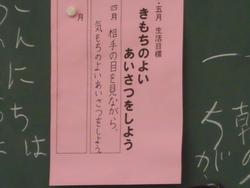 ・五月 生活目標
きもちのよい
あいさつをしよう
四月 相手の目を見ながら、
気もちのよいあいさつをしよう。
月
一
朝の
ちが
こんにちは